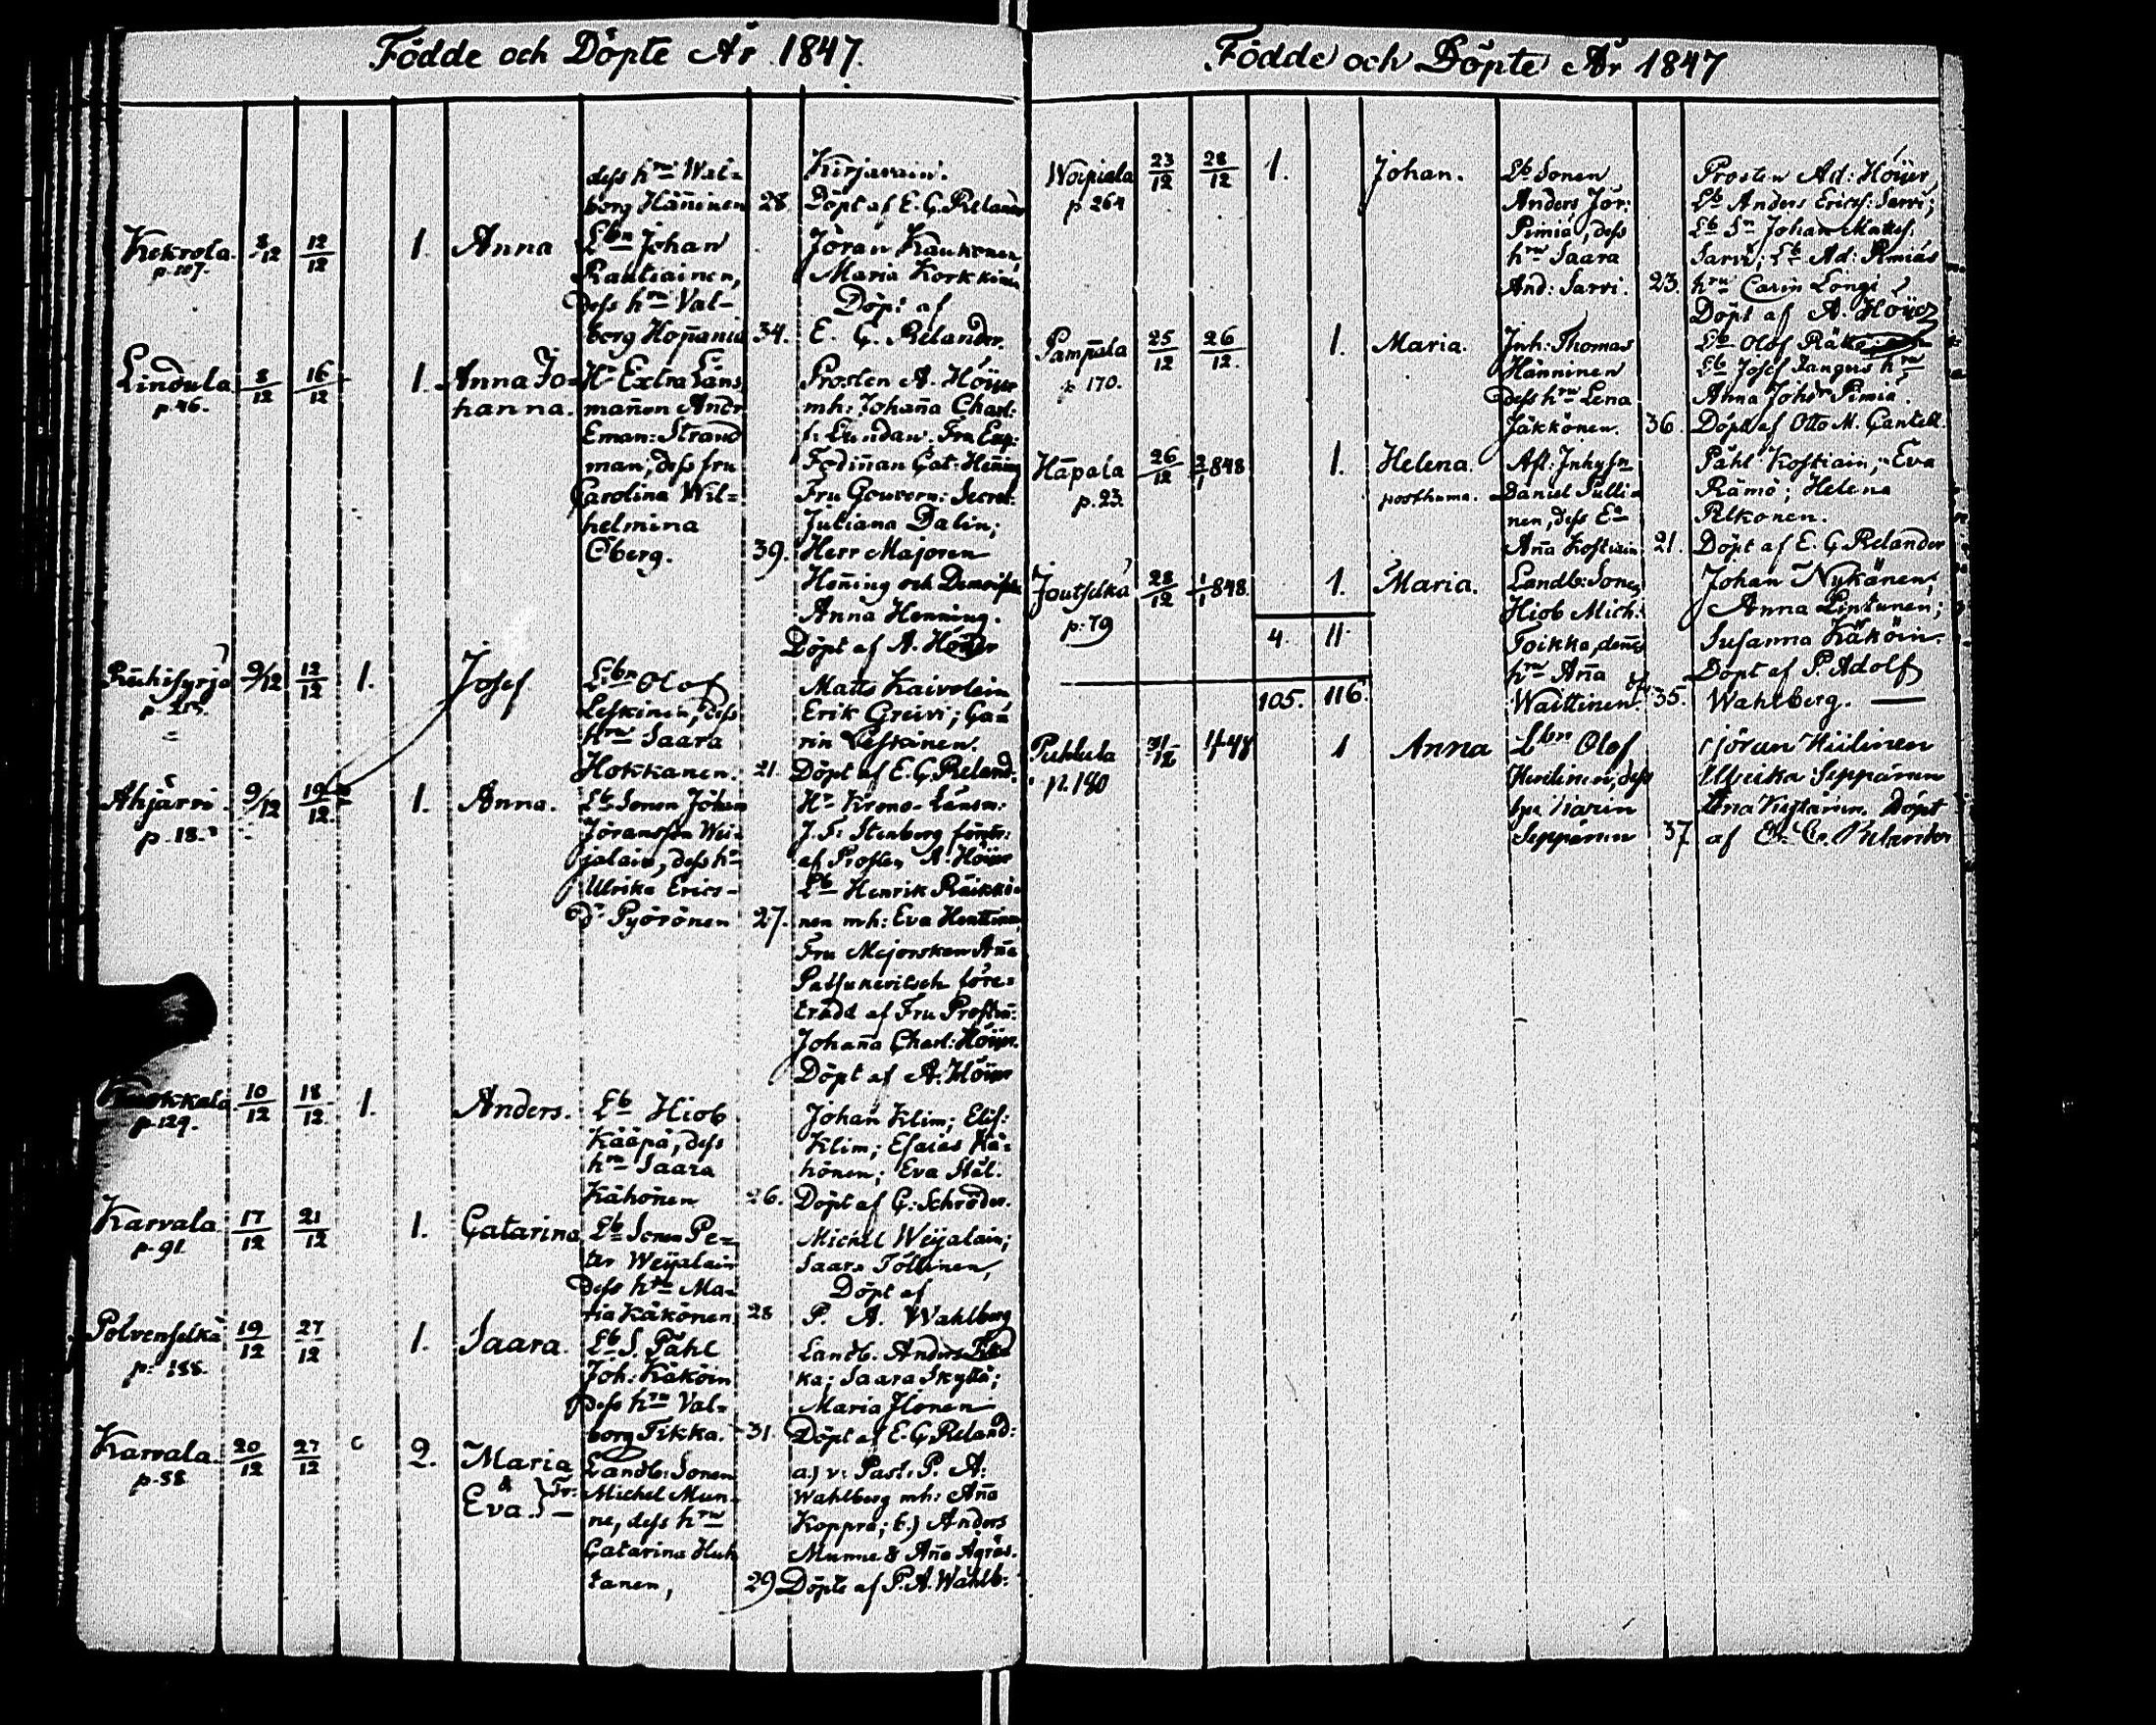 Födde och Döpte År 1847.
dess hru Wal=
borg Häninen 28.
Kirjavain.
Döpt af E. G. Relander
Kekrola 8/12 12/12 1. Anna
p. 107.
Lbn Johan
Rautiainen,
dess hru Val-
borg Hopania 34.
Jöran Kaukonen,
Maria Korkkinen
Döpt af
E. G. Relander.
Lindula 8/12 16/12 1. Anna Jo-
p. 46. hanna.
Hr Extra Läns
mannen Andr
Eman: Strand
man, dess fru
Carolina Wil=
helmina
Öberg. 39.
Prosten A. Höijer
mh: Johanna Charl:
Fru Gouvern: Secret:
Juliana Dalin;
Herr Majoren
Henning och
Anna Henning.
Döpt af A. Höijer
9/12 12/12 1. Josef
Lbn Olof
Leskinen, dess
hru Saara
Hokkanen. 21.
Matts
Erik Greivi; Ca-
rin Leskinen.
Döpt af E. G. Reland:
Ahjärvi. 9/12 19/12 1. Anna.
p. 18.
Lb Sonen Johan
Jöransson Wei-
jalain, dess hu
Ulrika Erics-
dr Pyörönen 27.
Hr Krono-Länsm:
J. F. Stenberg
af Prosten A. Höijer
Lb Henrik Räikkö-
nen mh: Eva Henttinen
Fru Majorskan Anna
före=
trädd af Fru
Johanna Charl: Höijer.
Döpt af A. Höijer
10/12 18/12 1. Anders.
p. 129.
Lb Hiob
Kääpä, dess
hru Saara
Kähönen 26.
Johan Klim; Elis:
Klim; Esaias Kä-
hönen; Eva Stål.
Döpt af G: Schröder.
Karvala 17/12 21/12 1. Catarina
p. 91
Lb Sonen Pe-
ter Weijalain
dess hru Ma-
ria Käkönen 28
Michel Weijalain;
Saara Töllinen,
Döpt af
P. A. Wahlberg
Polvenselkä 19/12 27/12 1. Saara.
p. 188.
Lb S. Påhl
Joh: Käköin
dess hru Val-
borg Tikka. 31.
Landb. Anders Tik-
ka; Saara Skyttä;
Maria Ilonen
Döpt af E. G. Reland:
Karvala 20/12 27/12 2. Maria
p. 88 & } Tv:
Eva.
Landb: Sonen
Michel Mun-
ne, dess hru
Catarina Huh
tanen, 29
a.) v: Past: P. A.
Wahlberg mh: Anna
Koppra; b.) Anders
Munne & Anna Ägräs.
Döpte af P. A. Wahlb:
Födde och Döpte År 1847
Woipiala 23/12 28/12 1. Johan.
p. 264
Lb Sonen
Anders Jör:
Pimiä, dess
hru Saara
And: Sarvi. 23.
Prosten Ad: Höijer
Lb Anders Erics: Sarvi;
Lb Sn Johan Matts:
Sarvi; Lb Ad: Pimiäs
hru Carin Longi
Döpt af A. Höijer
Pampala 25/12 26/12. 1. Maria.
p. 170.
Inh: Thomas
Hänninen
dess hru Lena
Jäkkönen. 36.
Lb Olof
Lb Josef Jangers hru
Anna Johsdr Pimiä.
Döpt af Otto M. Cantell.
Häpälä 26/12 2/1 848 1. Helena.
p. 23. posthuma.
Afl: Inhysn
Daniel Sulli-
nen, dess Ea
Anna Kostiain 21.
Påhl Kostiain; Eva
Rämö; Helena
Pelkonen.
Döpt af E. G Relander
Joutselkä 28/12 1/1 848. 1. Maria.
p: 79
4. 11.
105. 116.
Landb: Sonen
Hiob Mich:
Toikka, dennes
hru Anna
Waittinen. 35.
Johan Nykänen;
Anna Lintunen;
Susanna Käköin.
Döpt af P. Adolf
Wahlberg. —
Puhkula 31/12 1/1 48 1 Anna
p. 180
Lbn Olof
Hiilinen, dess
hu Karin
Seppänen 37
Jöran Hiilinen
Ulrika Seppänen
Döpt
af E. G. Relander